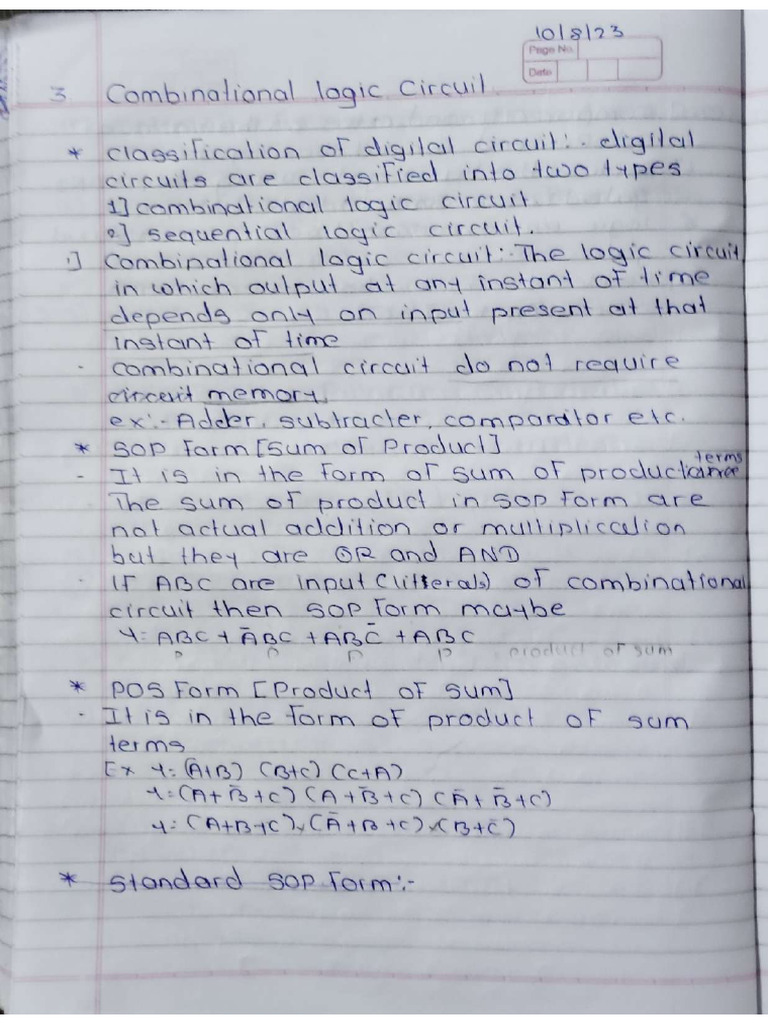 10/8/23
Page No.
Date
3 Combinational logic Circuit
* classification of digital circuit:- digital
circuits are classified into two types
1] combinational logic circuit
2] sequential logic circuit.
1] Combinational logic circuit:- The logic circuit
in which output at any instant of time
depends only on input present at that
instant of time
- combinational circuit do not require
circuit memory.
ex:- Adder, subtracter, comparator etc.
* SOP Form [Sum of Product]
terms
- It is in the form of sum of product
The sum of product in SOP Form are
not actual addition or multiplication
but they are OR and AND
- If ABC are input (litterals) of combinational
circuit then SOP Form maybe
Y = ABC + A̅BC + ABC̅ + ABC
P P P P product of sum
* POS Form [Product of sum]
- It is in the form of product of sum
terms
Ex Y = (A+B) (B+C) (C+A)
Y = (A+B̅+C) (A+B̅+C) (A̅+B̅+C)
Y = (A+B+C) (A̅+B+C) (B+C̅)
* Standard SOP Form:-